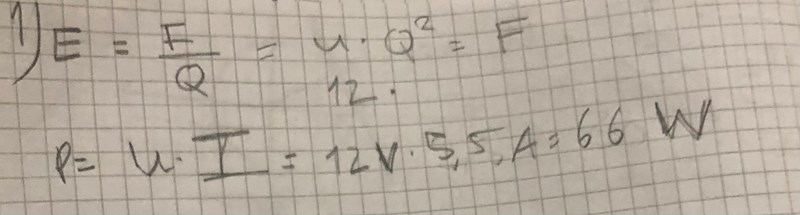 1) E = F/Q = u · Q² = F
12 ·
P = u · I = 12V · 5,5 A = 66 W